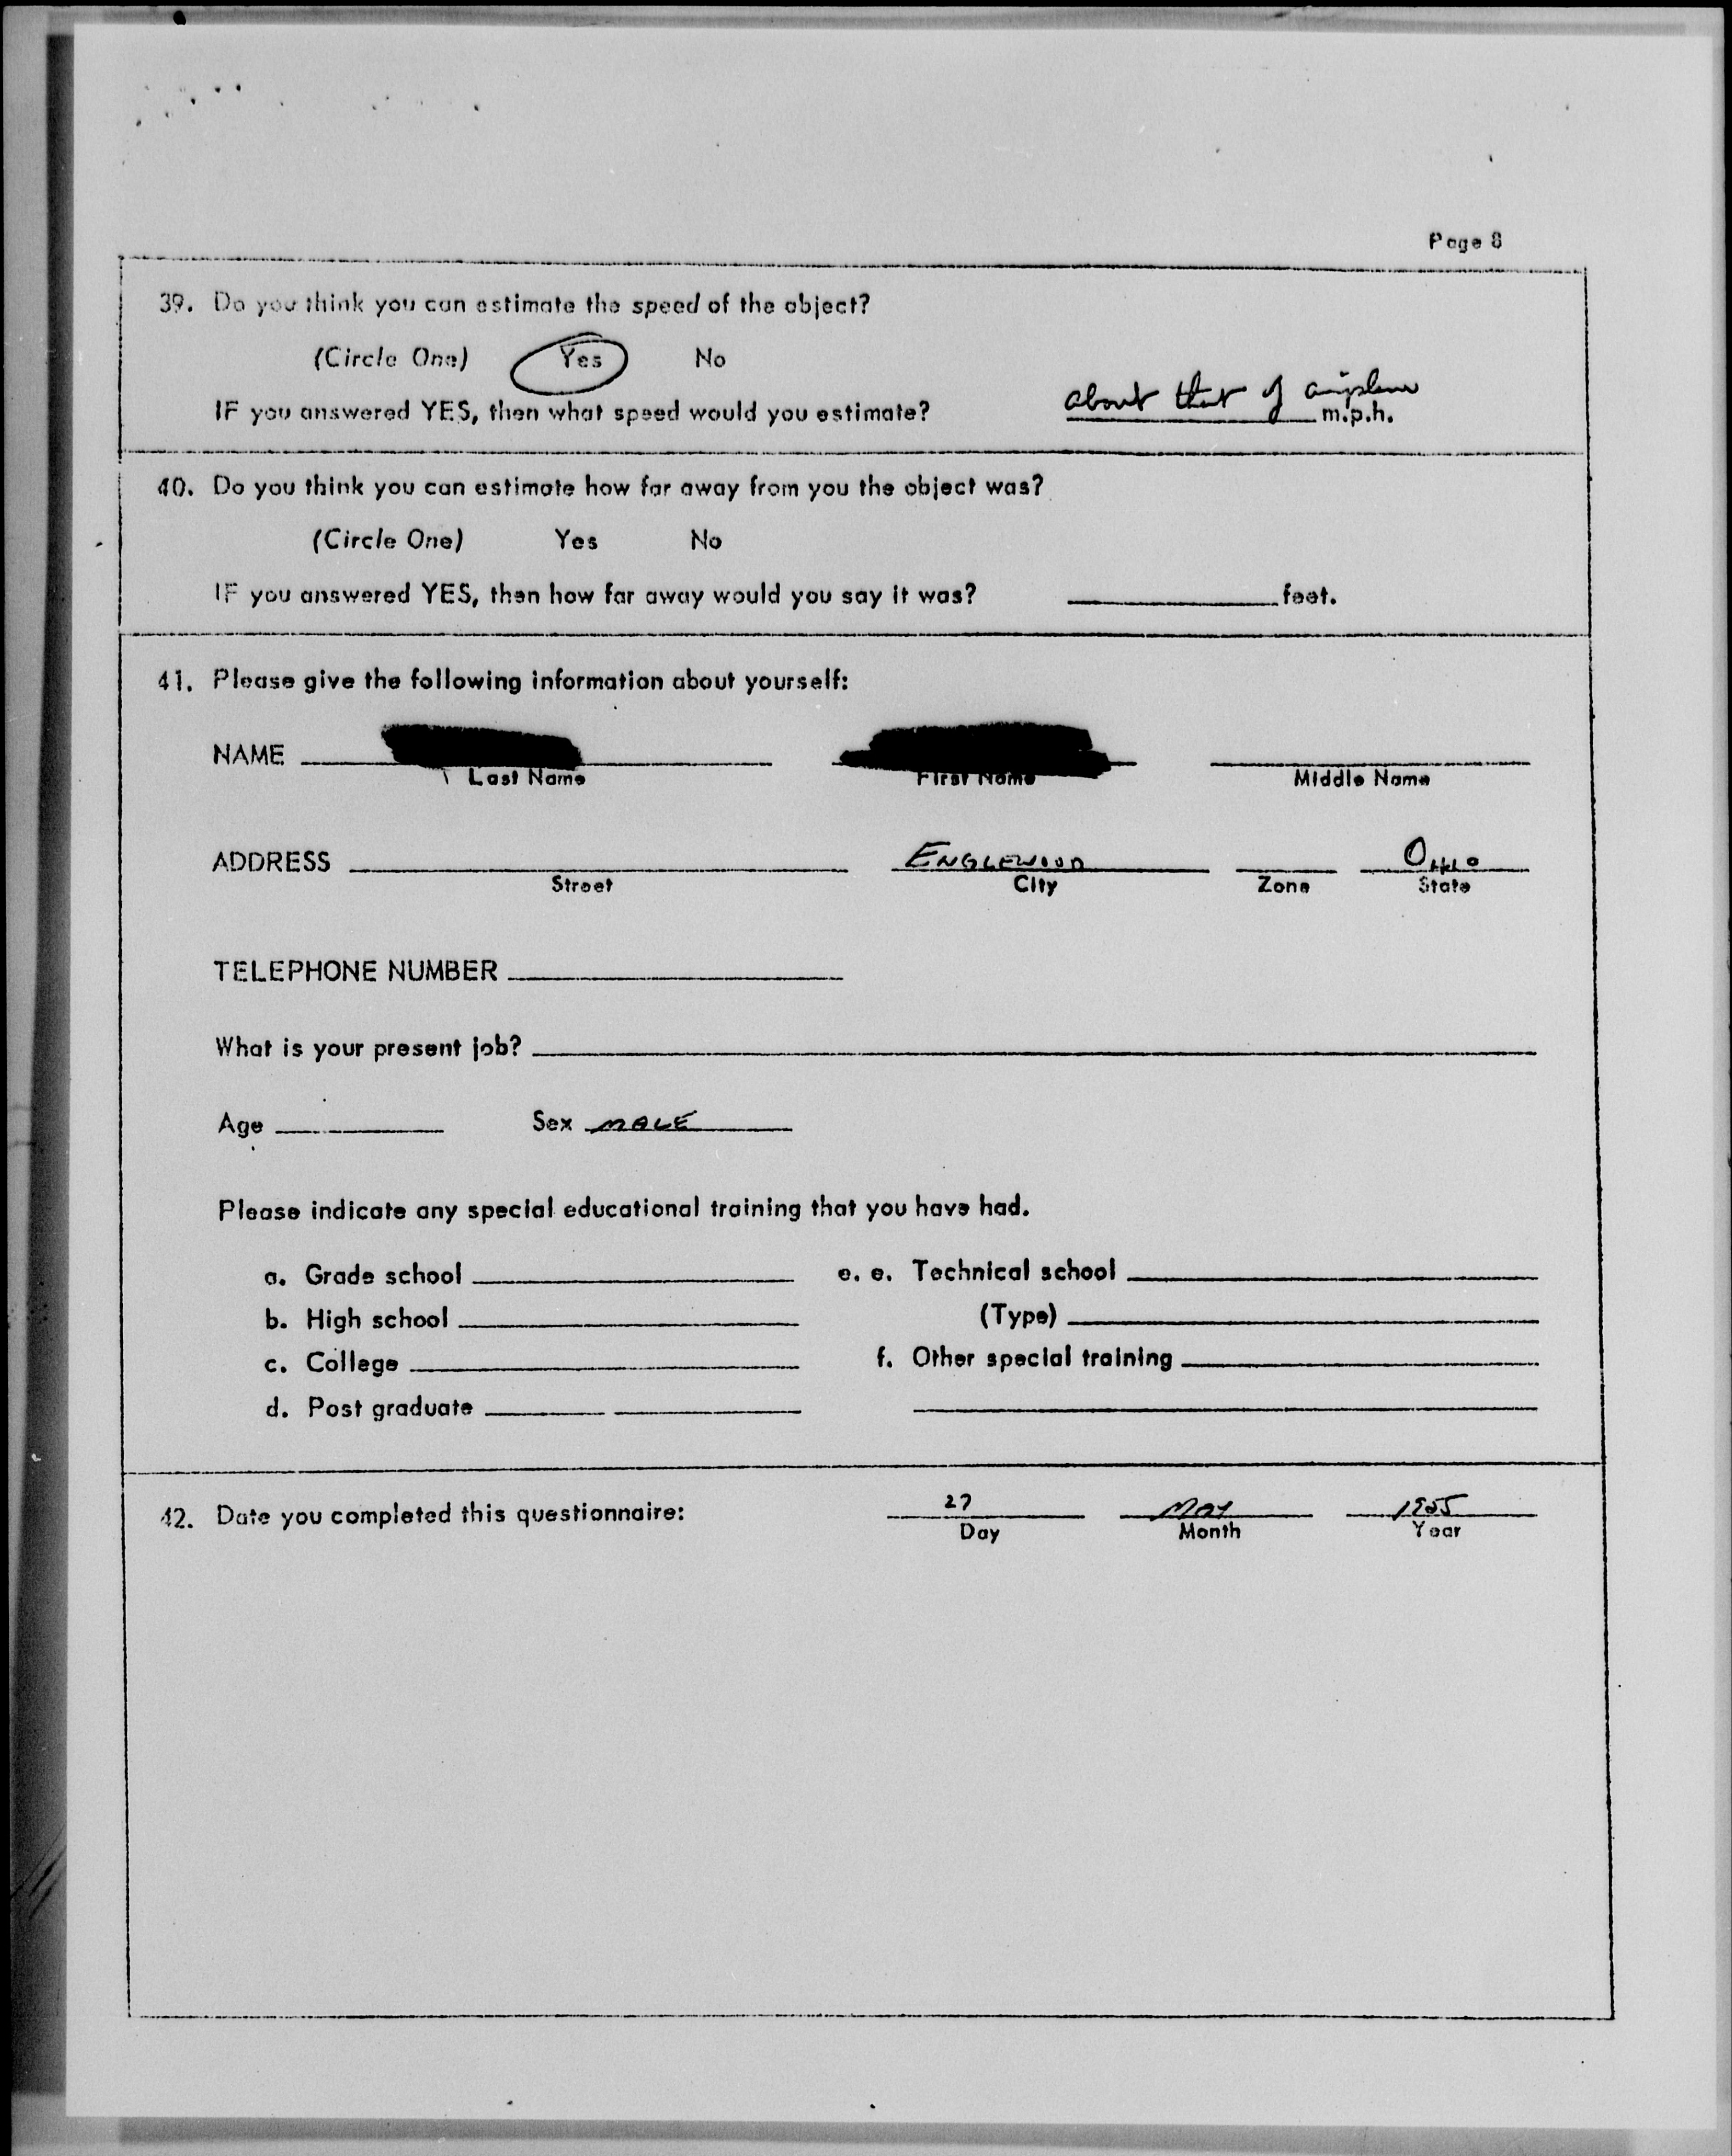 Page 8
39. Do you think you can estimate the speed of the object?
(Circle One) Yes No
about that of airplane
IF you answered YES, then what speed would you estimate? m.p.h.
40. Do you think you can estimate how far away from you the object was?
(Circle One) Yes No
IF you answered YES, then how far away would you say it was? feet.
41. Please give the following information about yourself:
NAME
Last Name First Name Middle Name
ADDRESS ENGLEWOOD OHIO
Street City Zone State
TELEPHONE NUMBER
What is your present job?
Age Sex MALE
Please indicate any special educational training that you have had.
a. Grade school e. e. Technical school
b. High school (Type)
c. College f. Other special training
d. Post graduate
42. Date you completed this questionnaire: 27 MAY 1955
Day Month Year